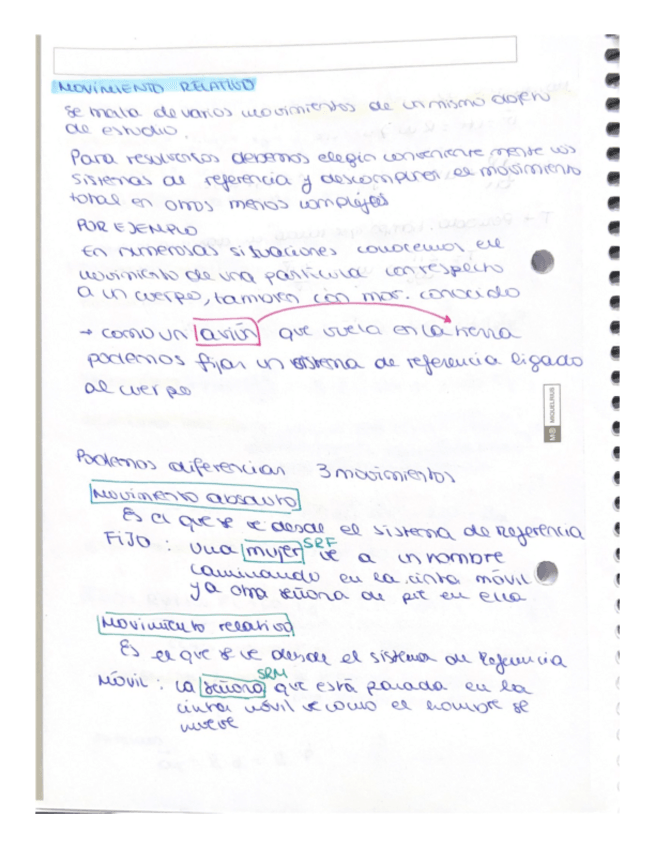 MOVIMIENTO RELATIVO
Se trata de varios movimientos de un mismo objeto
de estudio.
Para resolverlos debemos elegir convenientemente los
sistemas de referencia y descomponer el movimiento
total en otros menos complejos
POR EJEMPLO
En numerosas situaciones conocemos el
movimiento de una partícula con respecto
a un cuerpo, también con mov. conocido
→ como un avión que vuela en la tierra
podemos fijar un sistema de referencia ligado
al cuerpo
MIQUELRIUS
Podemos diferenciar 3 movimientos
Movimiento absoluto
Es el que se ve desde el sistema de Referencia
SRF
FIJO : una mujer ve a un hombre
caminando en la cinta móvil
y a otra señora de pie en ella
Movimiento relativo
Es el que se ve desde el sistema de Referencia
SRM
MÓVIL : la señora que está parada en la
cinta móvil ve como el hombre se
mueve